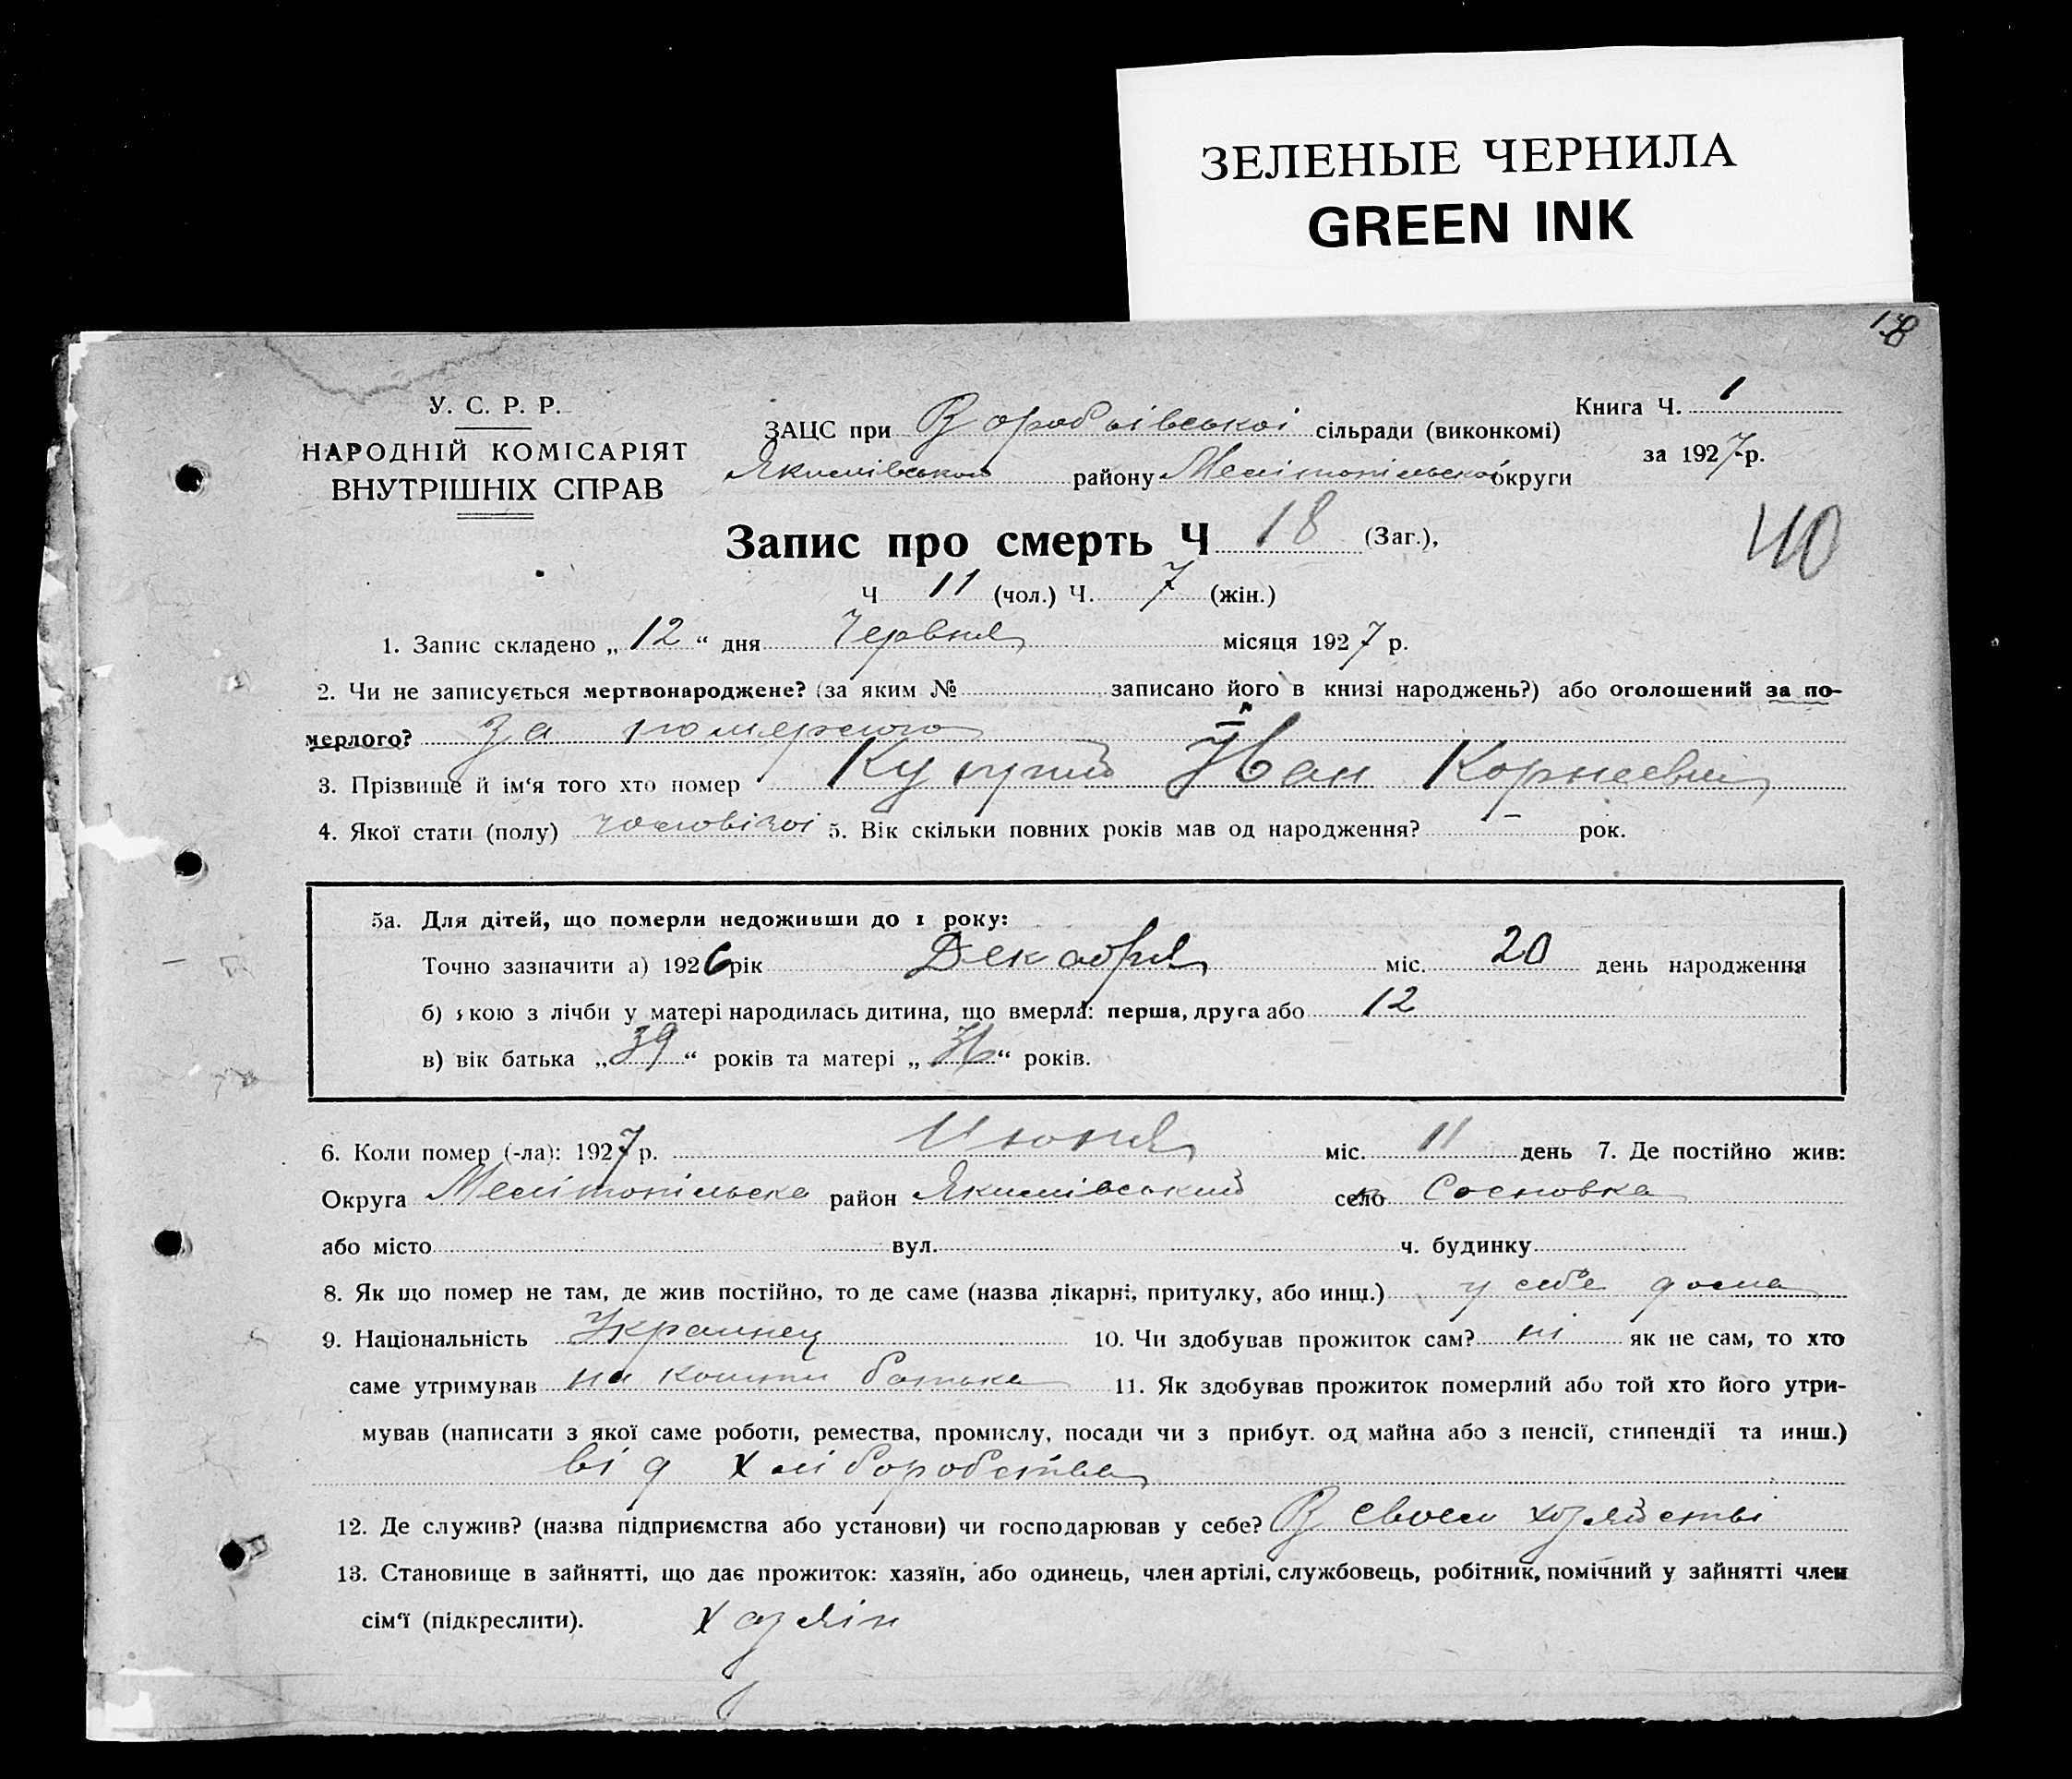 ЗЕЛЕНЫЕ ЧЕРНИЛА
GREEN INK
18
У. С. Р. Р.
НАРОДНІЙ КОМІСАРІЯТ
ВНУТРІШНІХ СПРАВ
ЗАЦС при Воробьівської сільради (виконкомі)
Якимівського району Мелітопільської округи
Книга Ч. 1
за 1927 р.
Запис про смерть Ч 18 (Заг.),
40
Ч 11 (чол.) Ч. 7 (жін.)
1. Запис складено „ 12 “ дня Червня місяця 1927 р.
2. Чи не записується мертвонароджене? (за яким № записано його в книзі народжень?) або оголошений за по-
мерлого? за померлого
3. Прізвище й ім‘я того хто помер Иван Корнеевич
4. Якої стати (полу) чоловічої 5. Вік скільки повних років мав од народження? – рок.
5а. Для дітей, що померли недоживши до 1 року:
Точно зазначити а) 1926 рік Декабря міс. 20 день народження
б) якою з лічби у матері народилась дитина, що вмерла: перша, друга або 12
в) вік батька „ 39 “ років та матері „ “ років.
6. Коли помер (-ла): 1927 р. Июня міс. 11 день 7. Де постійно жив:
Округа Мелітопільска район Якимівський село Сосновка
або місто вул. ч. будинку
8. Як що помер не там, де жив постійно, то де саме (назва лікарні, притулку, або инш.) у себе дома
9. Національність Украинец 10. Чи здобував прожиток сам? ні як не сам, то хто
саме утримував на кошти батька 11. Як здобував прожиток померлий або той хто його утри-
мував (написати з якої саме роботи, ремества, промислу, посади чи з прибут. од майна або з пенсії, стипендії та инш.)
від хліборобства
12. Де служив? (назва підприємства або установи) чи господарював у себе? В своем хозяйстві
13. Становище в зайнятті, що дає прожиток: хазяїн, або одинець, член артілі, службовець, робітник, помічний у зайнятті член
сім‘ї (підкреслити). хазяін